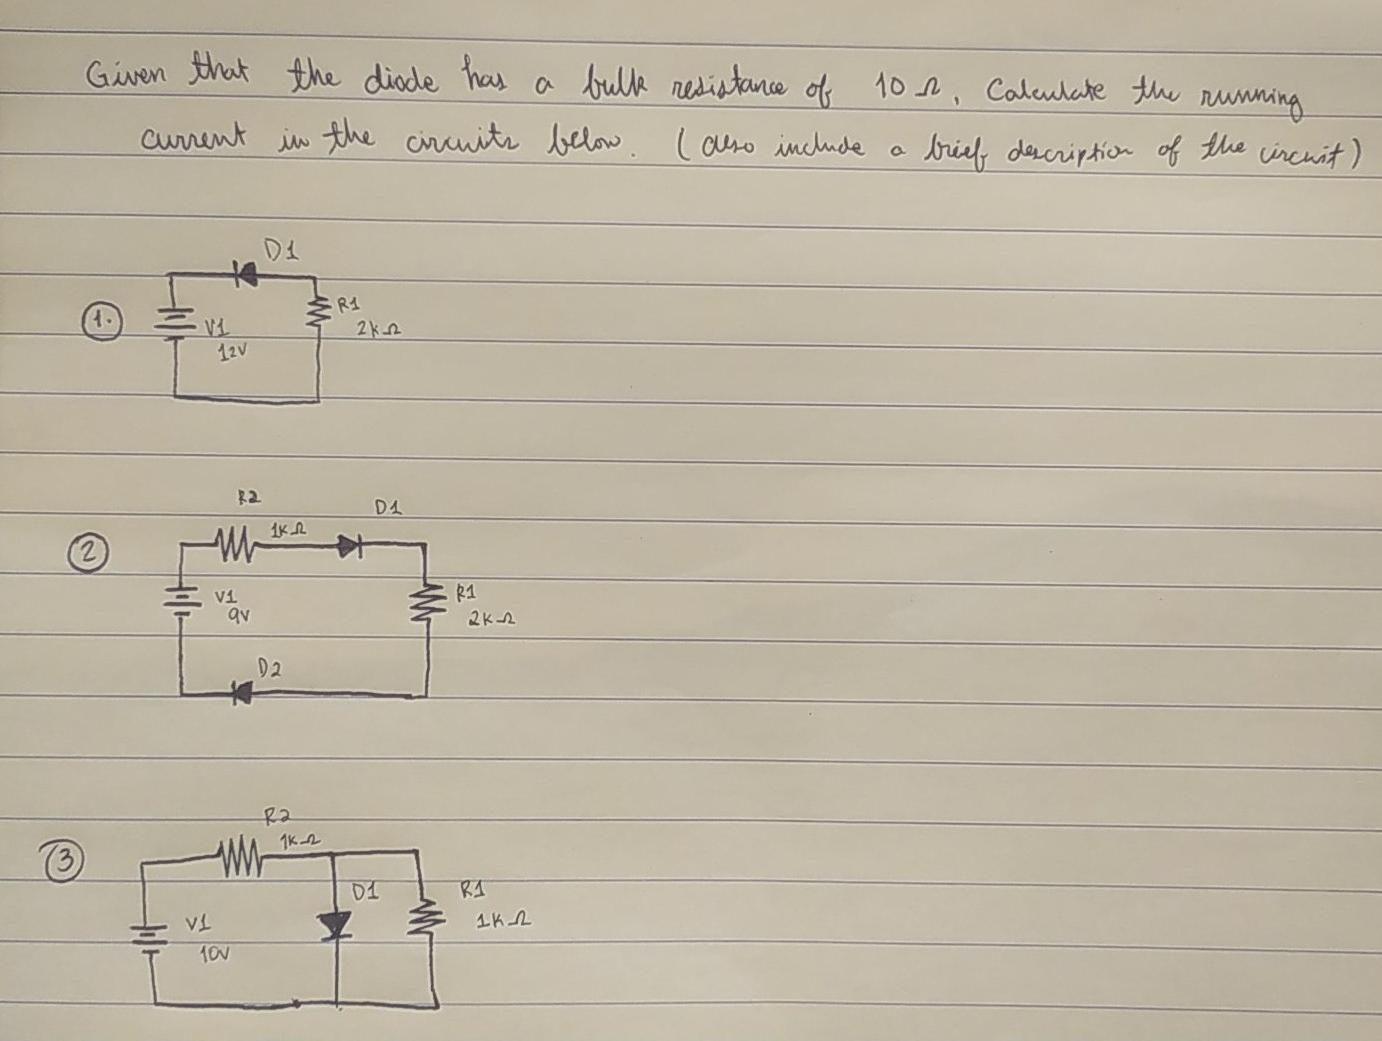 Given that the diode has a bulk resistance of 10 Ω, Calculate the running
current in the circuits below. (also include a brief description of the circuit)
D1
1.
R1
2kΩ
V1
12V
R2
1kΩ
D1
2
V1
9V
R1
2kΩ
D2
R2
1kΩ
3
D1
R1
1kΩ
V1
10V